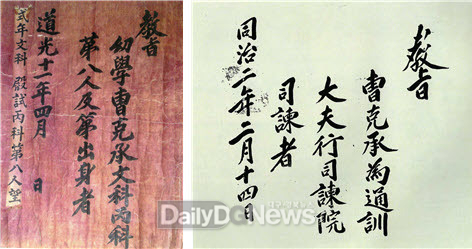 敎旨
幼學曺克承文科丙科
第八人及第出身者
道光十一年四月 日
式年文科殿試丙科第八人望
敎旨
曺克承爲通訓
大夫行司諫院
司諫者
同治二年二月十四日
DailyDGNews